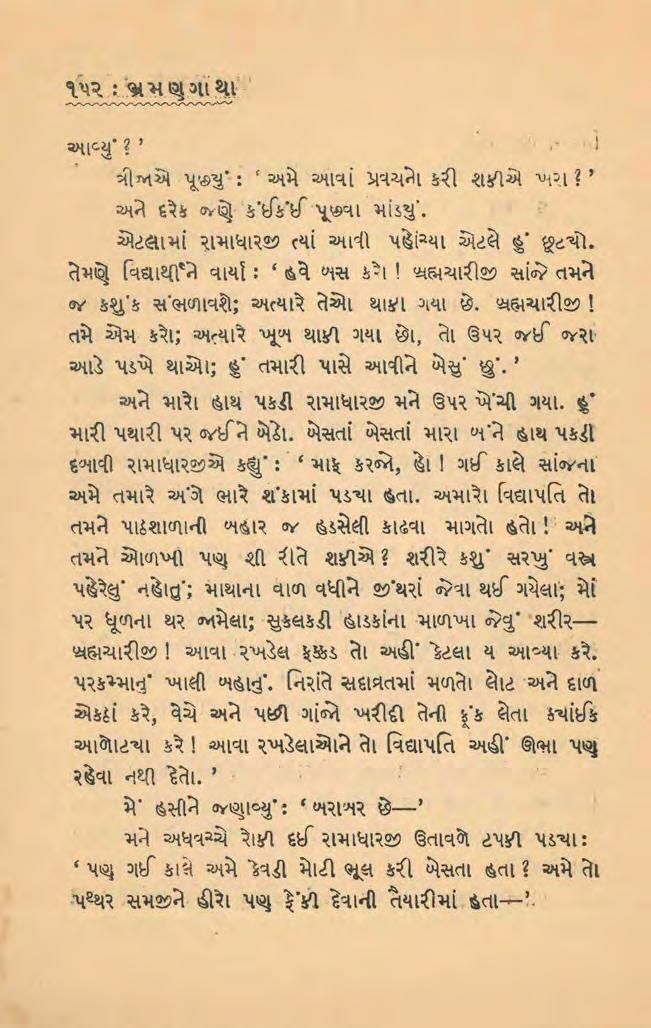 ૧૫૨ : ભ્રમણગાથા
આવ્યું ? ’
ત્રીજાએ પૂછ્યું : ‘ અમે આવાં પ્રવચનો કરી શકીએ ખરા ? ’
અને દરેક જણે કંઈકંઈ પૂછવા માંડયું.
એટલામાં રામાધારજી ત્યાં આવી પહોંચ્યા એટલે હું છૂટયો.
તેમણે વિદ્યાર્થીને વાર્યા : ‘ હવે બસ કરો ! બ્રહ્મચારીજી સાંજે તમને
જ કશુંક સંભળાવશે; અત્યારે તેઓ થાકી ગયા છે. બ્રહ્મચારીજી !
તમે એમ કરો; અત્યારે ખૂબ થાકી ગયા છો, તો ઉપર જઈ જરા
આડે પડખે થાઓ; હું તમારી પાસે આવીને બેસું છું. ’
અને મારો હાથ પકડી રામાધારજી મને ઉપર ખેંચી ગયા. હું
મારી પથારી પર જઈને બેઠો. બેસતાં બેસતાં મારા બંને હાથ પકડી
દબાવી રામાધારજીએ કહ્યું : ‘ માફ કરજો, હો ! ગઈ કાલે સાંજના
અમે તમારે અંગે ભારે શંકામાં પડયા હતા. અમારો વિદ્યાપતિ તો
તમને પાઠશાળાની બહાર જ હડસેલી કાઢવા માગતો હતો ! અને
તમને ઓળખી પણ શી રીતે શકીએ ? શરીરે કશું સરખું વસ્ત્ર
પહેરેલું નહોતું; માથાના વાળ વધીને જીંથરાં જેવા થઈ ગયેલા; મોં
પર ધૂળના થર જામેલા; સુકલકડી હાડકાંના માળખા જેવું શરીર—
બ્રહ્મચારીજી ! આવા રખડેલ ફક્કડ તો અહીં કેટલા ય આવ્યા કરે.
પરકમ્માનું ખાલી બહાનું. નિરાંતે સદાવ્રતમાં મળતો લોટ અને દાળ
એકઠાં કરે, વેચે અને પછી ગાંજો ખરીદી તેની ફૂંક લેતા કયાંઈક
આળોટયા કરે ! આવા રખડેલાઓને તો વિદ્યાપતિ અહીં ઊભા પણ
રહેવા નથી દેતો. ’
મેં હસીને જણાવ્યું : ‘ બરાબર છે—’
મને અધવચ્ચે રોકી દઈ રામાધારજી ઉતાવળે ટપકી પડયા :
‘ પણ ગઈ કાલે અમે કેવડી મોટી ભૂલ કરી બેસતા હતા ? અમે તો
પથ્થર સમજીને હીરો પણ ફેંકી દેવાની તૈયારીમાં હતા—’